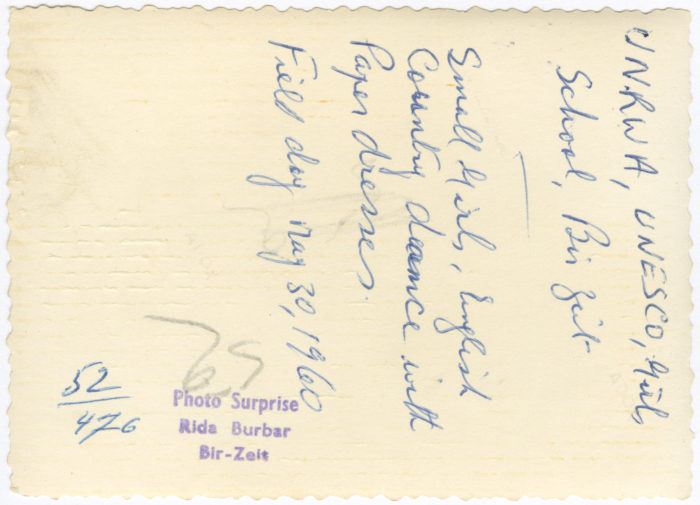 UNRWA, UNESCO, Girls
School, Bir Zeit
Small Girls, English
Country dance with
Paper dresses.
Field day May 30, 1960
52/476
Photo Surprise
Rida Burbar
Bir-Zeit